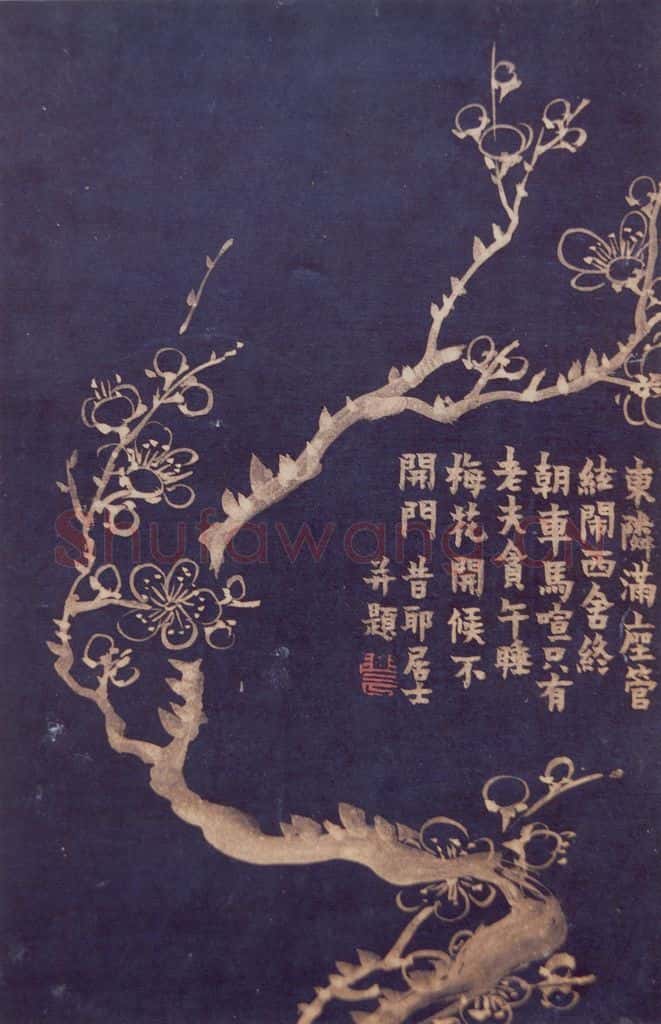 東隣滿座管
絃鬧西舍終
朝車馬喧只有
老夫貪午睡
梅花開候不
開門 昔耶居士
并題
Shufawang.CN